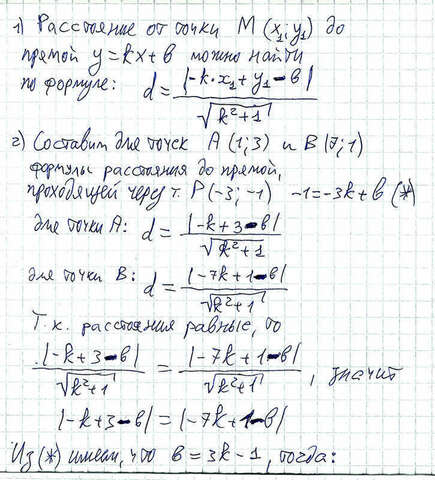 1) Расстояние от точки M (x₁; y₁) до
прямой y = kx + b можно найти
по формуле: d = |-k·x₁ + y₁ - b| / √(k² + 1)
2) Составим для точек A (1; 3) и B (7; 1)
формулы расстояния до прямой,
проходящей через т. P (-3; -1) -1 = -3k + b (*)
для точки A: d = |-k + 3 - b| / √(k² + 1)
для точки B: d = |-7k + 1 - b| / √(k² + 1)
Т.к. расстояния равные, то
|-k + 3 - b| / √(k² + 1) = |-7k + 1 - b| / √(k² + 1), значит
|-k + 3 - b| = |-7k + 1 - b|
Из (*) имеем, что b = 3k - 1, тогда: